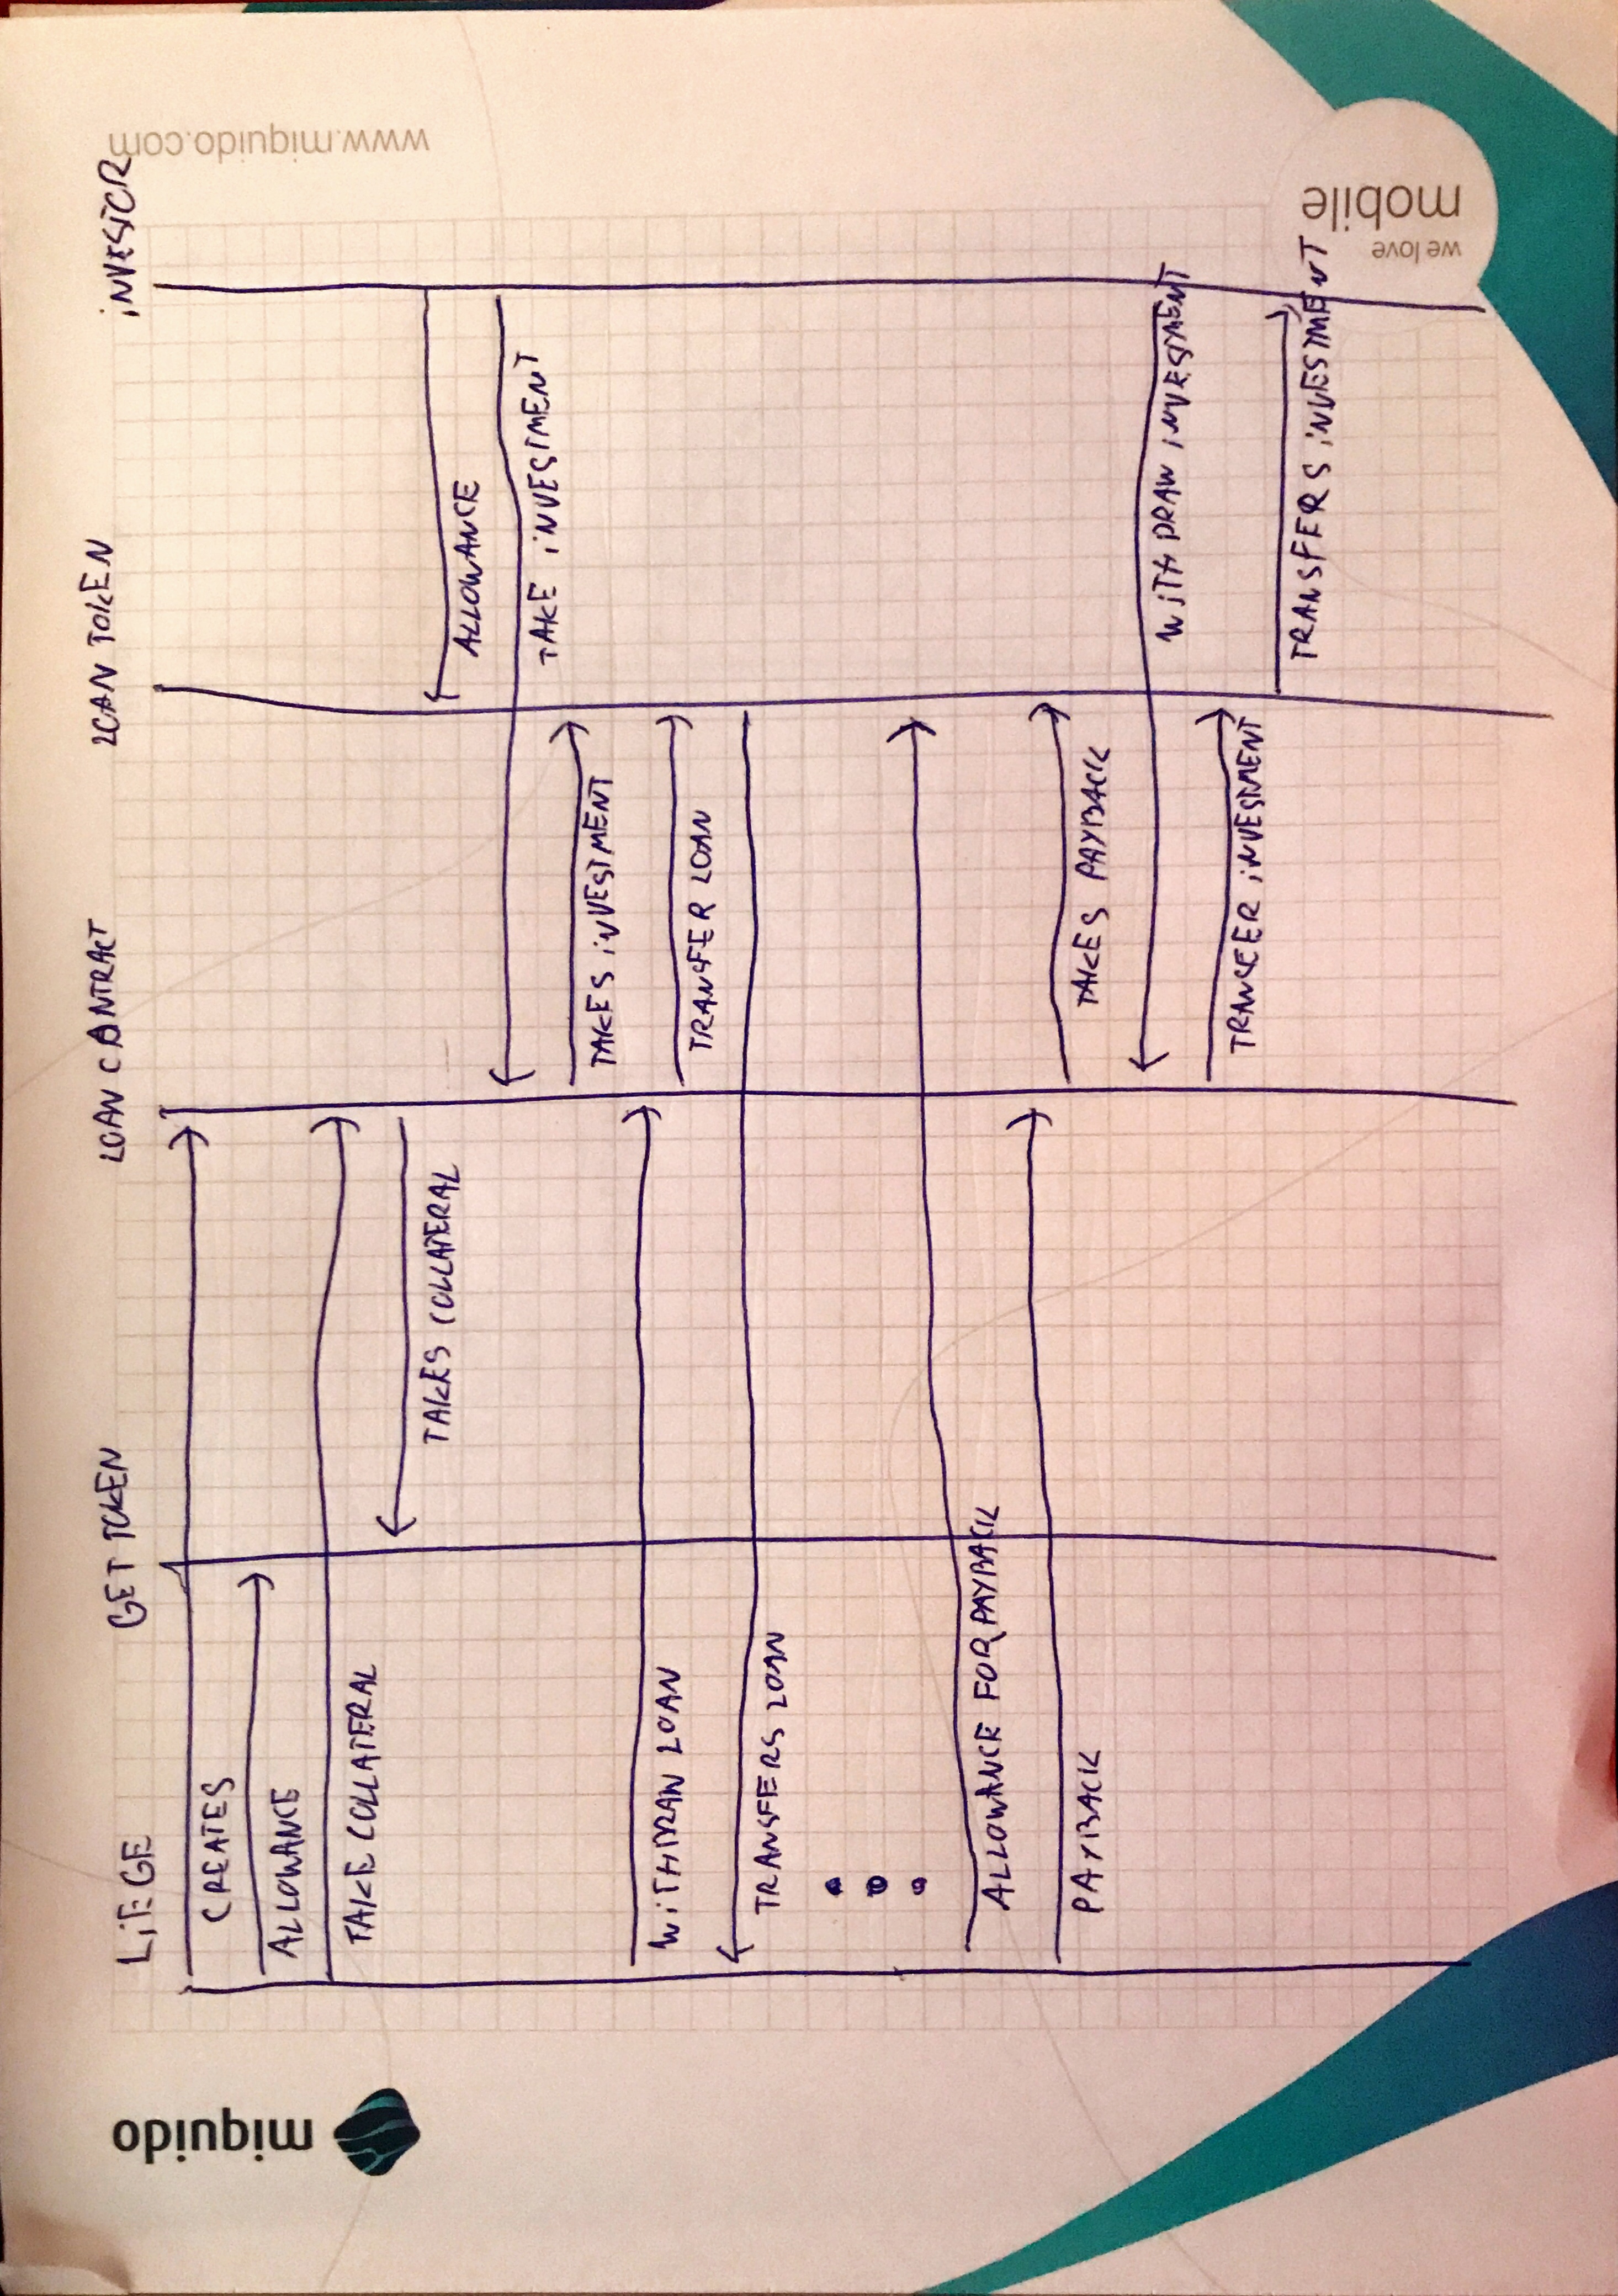 miquido
www.miquido.com
LiEGE
GET TOKEN
LOAN CONTRACT
LOAN TOKEN
iNVESTOR
CREATES
ALLOWANCE
TAKE COLLATERAL
TAKES COLLATERAL
ALLOWANCE
TAKE iNVESTMENT
TAKES iNVESTMENT
WiTHDRAW LOAN
TRANSFER LOAN
TRANSFERS LOAN
ALLOWANCE FOR PAYBACK
PAYBACK
TAKES PAYBACK
WiTHDRAW iNVESTMENT
TRANSFER iNVESTMENT
TRANSFERS iNVESTMENT
we love
mobile